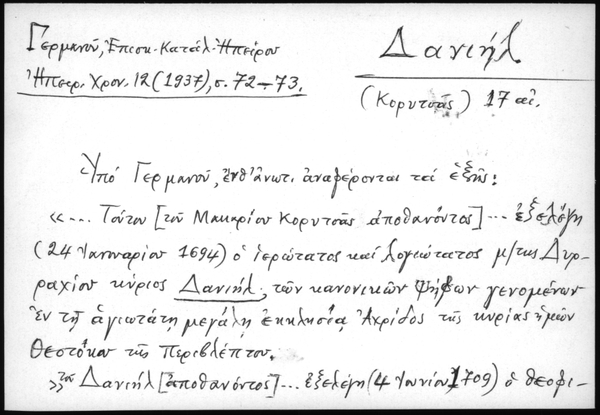 Γερμανοῦ, Ἐπισκ. Κατάλ. Ἠπείρου
Ἠπειρ. Χρον. 12 (1937), σ. 72-73.
Δανιήλ
(Κορυτσᾶς) 17 αἰ.
Ὑπό Γερμανοῦ, ἔνθ' ἀνωτ. ἀναφέρονται τά ἑξῆς:
«... Τούτου [τοῦ Μακαρίου Κορυτσᾶς ἀποθανόντος] ... ἐξελέγη
(24 Ἰαννουαρίου 1694) ὁ ἱερώτατος καί λογιώτατος μ/της Δυρ-
ραχίου κύριος Δανιήλ, τῶν κανονικῶν ψήφων γενομένων
ἐν τῇ ἁγιωτάτῃ μεγάλῃ ἐκκλησίᾳ Ἀχρίδος τῆς κυρίας ἡμῶν
Θεοτόκου τῆς Περιβλέπτου.
»τοῦ Δανιήλ [ἀποθανόντος] ... ἐξελέγη (4 Ἰουνίου 1709) ὁ θεοφι-